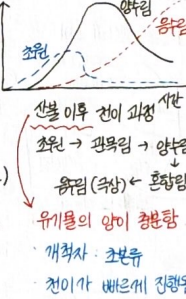 양수림
음수림
초원
시간
산불 이후 천이 과정
초원 → 관목림 → 양수림
↓
음수림(극상) ← 혼합림
유기물의 양이 충분함
· 개척자 : 초본류
· 천이가 빠르게 진행됨